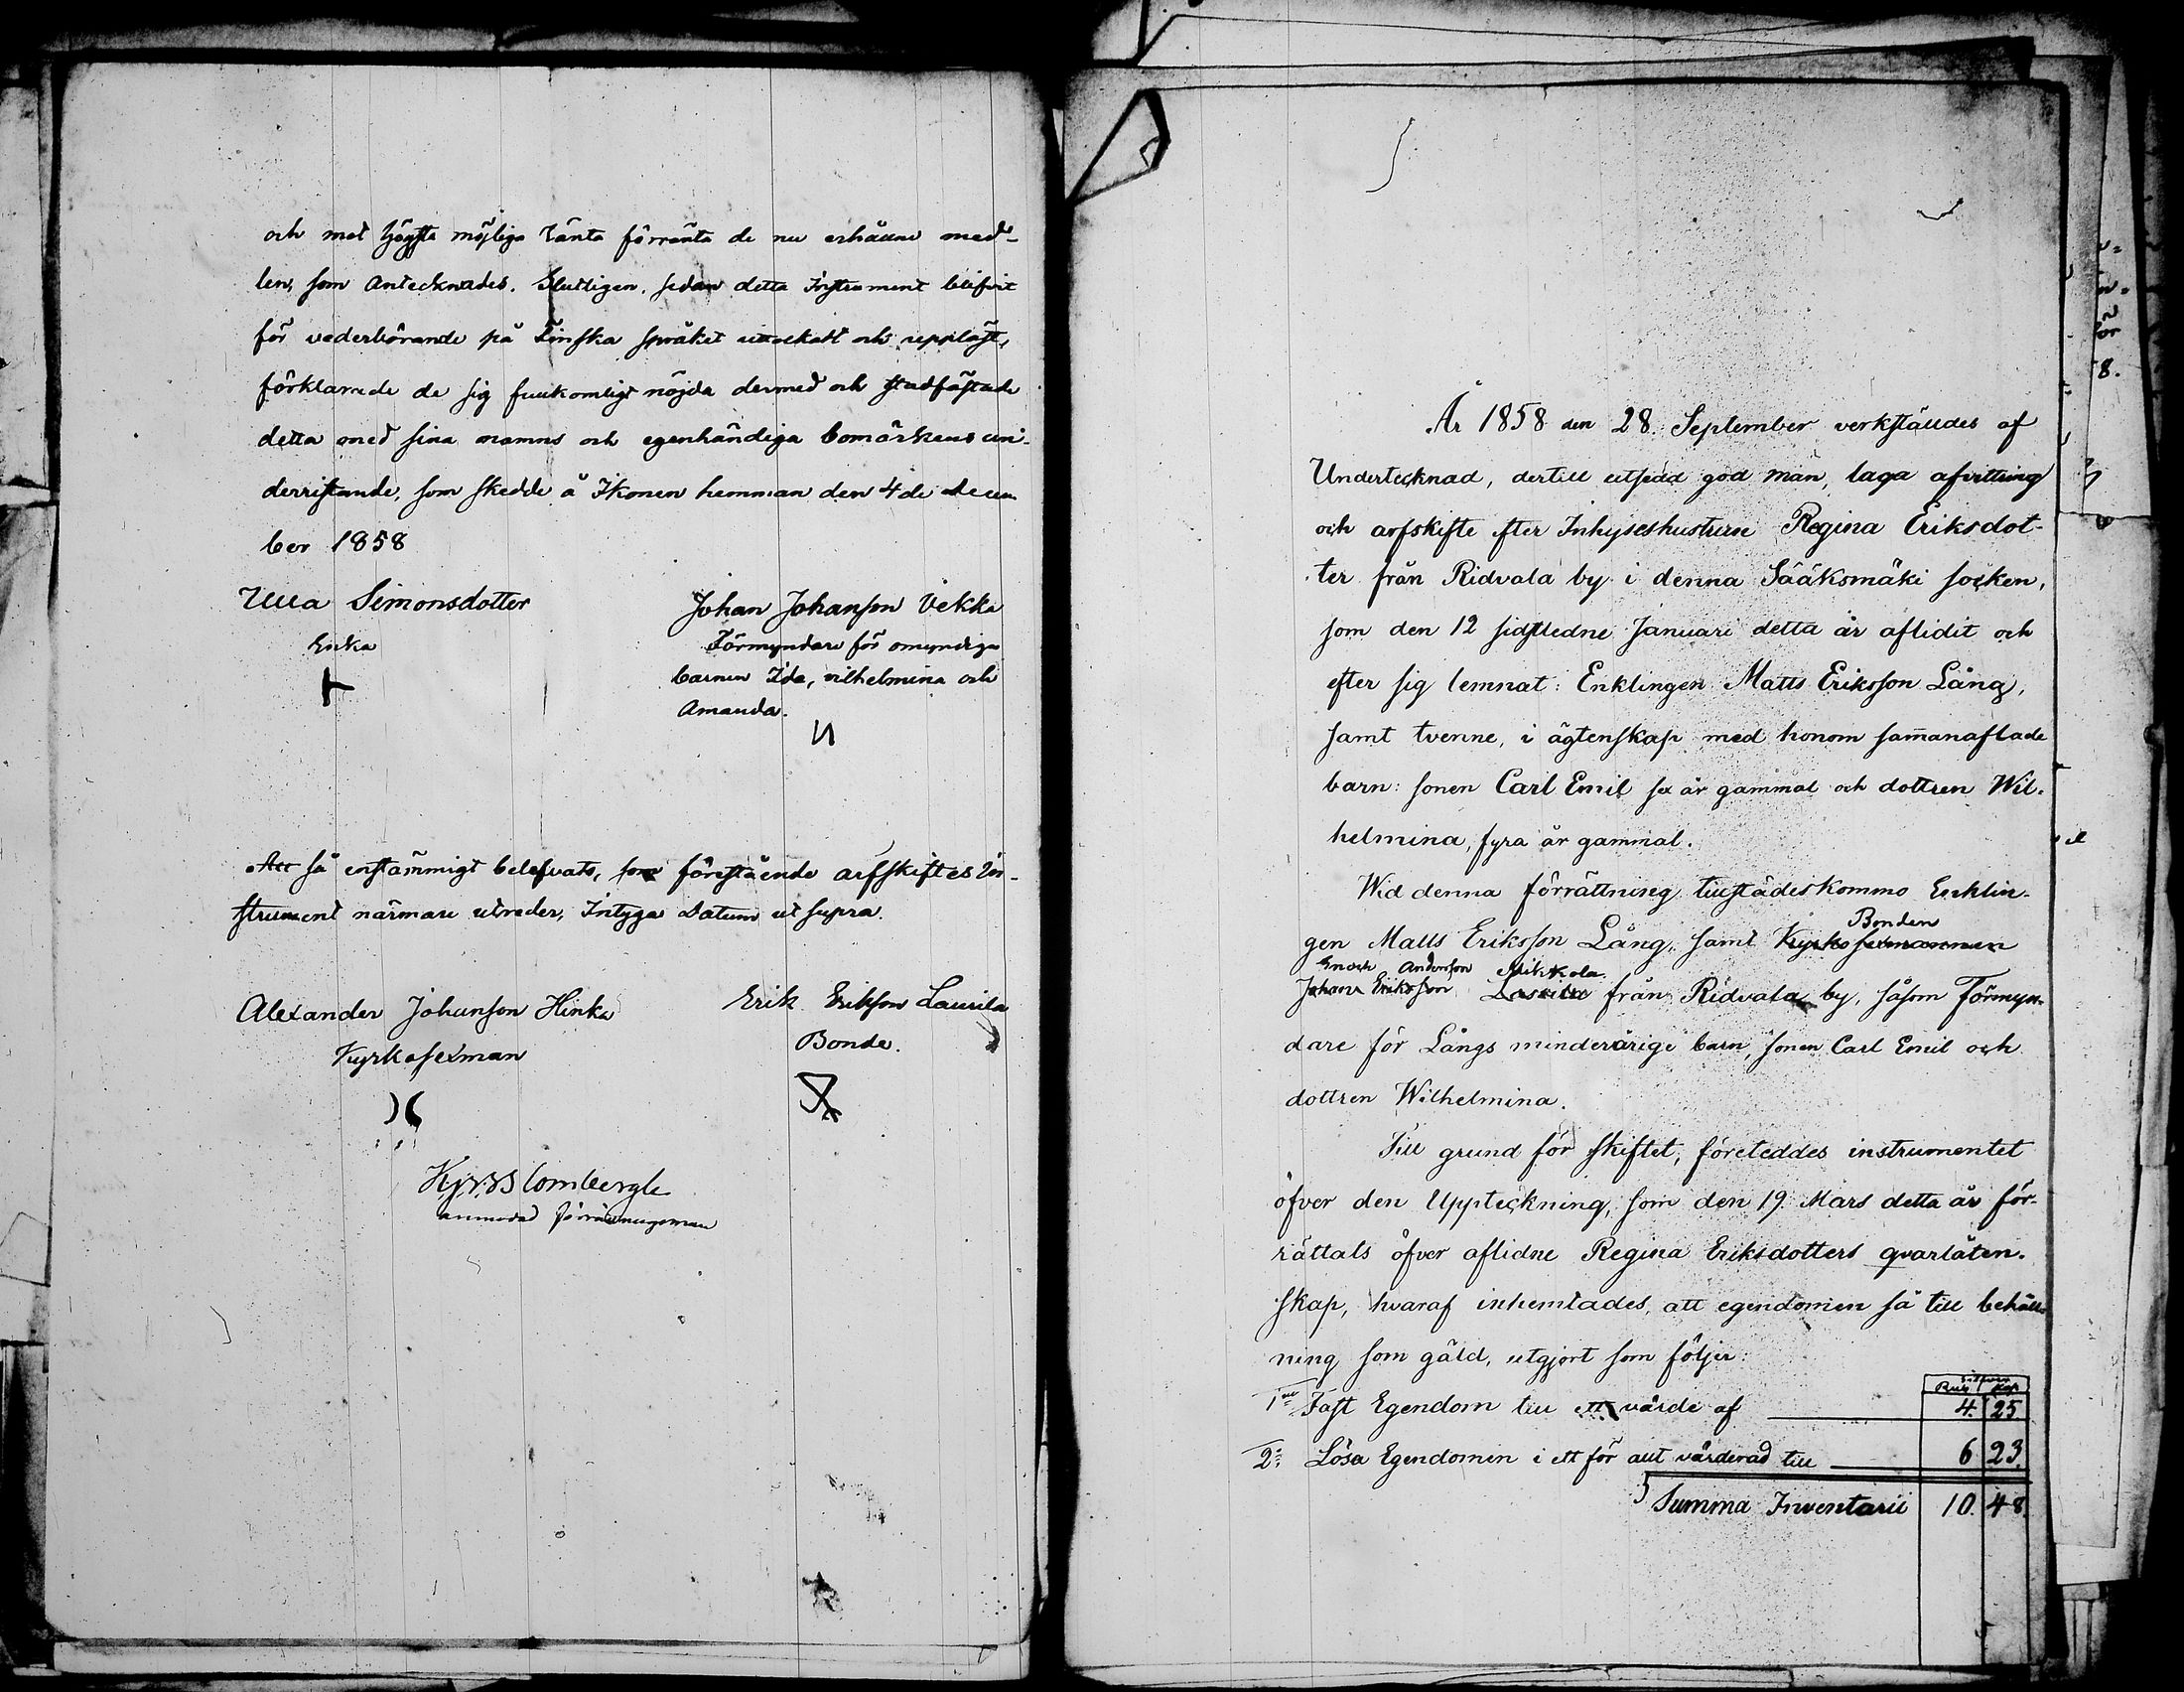 och mot högsta möjliga ränta förränta de nu erhållne med-
len, som antecknades. Slutligen, sedan detta Instrument blifvit
för vederbörande på Finska språket uttolkatt och uppläst,
förklarade de sig fullkomligt nöjda dermed och stadfästade
detta med sina namns och egenhändiga bomärkens un-
derristande, som skedde å Ikonen hemman den 4de decem
ber 1858
Ulla Simonsdotter
Enka
Johan Johansson Vekka
Förmyndare för omyndiga
barnen Ida, vilhelmina och
Amanda.
Att så enstämmigt belefvats, som förestående arfskiftes In-
strument närmare utreder, Intyga Datum ut supra.
Alexander Johanson Hinka
Kyrkosexman
Erik Erikson Laurila
Bonde.
anmodad förrättningsman
År 1858 den 28. September verkställdes af
Undertecknad, dertill utsedd god man, laga afvittring
och arfskifte efter Inhyseshustrun Regina Eriksdot-
ter från Ridvala by i denna Sääksmäki socken,
som den 12 sidstledne Januari detta år aflidit och
efter sig lemnat: Enklingen Matts Eriksson Lång,
samt tvenne, i ägtenskap med honom sam̄anaflade
barn: sonen Carl Emil sex år gammal och dottren Wil-
helmina, fyra år gammal.
Wid denna förrättning tillstädeskommo Enklin-
Bonden
gen Matts Eriksson Lång, samt Kyrkosexmannen
Enoch Andersson Mikkola
Johan Eriksson Lassila från Ridvala by, såsom Förmyn-
dare för Långs minderårige barn, sonen Carl Emil och
dottren Wilhelmina.
Till grund för skiftet, företeddes instrumentet
öfver den Uppteckning, som den 19. Mars detta år för-
rättats öfver aflidne Regina Eriksdotters qvarlåten-
skap, hvaraf inhemtades, att egendomen så till behåll-
ning som gäld, utgjort som följer:
Silfver
Rub. Kop.
1:o Fast Egendom till ett värde af 4. 25.
2:o Lösa Egendomen i ett för allt värderad till 6. 23.
Summa Inventarii 10. 48.